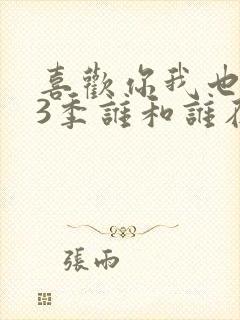 喜歡你我也
3季誰和誰在
張雨